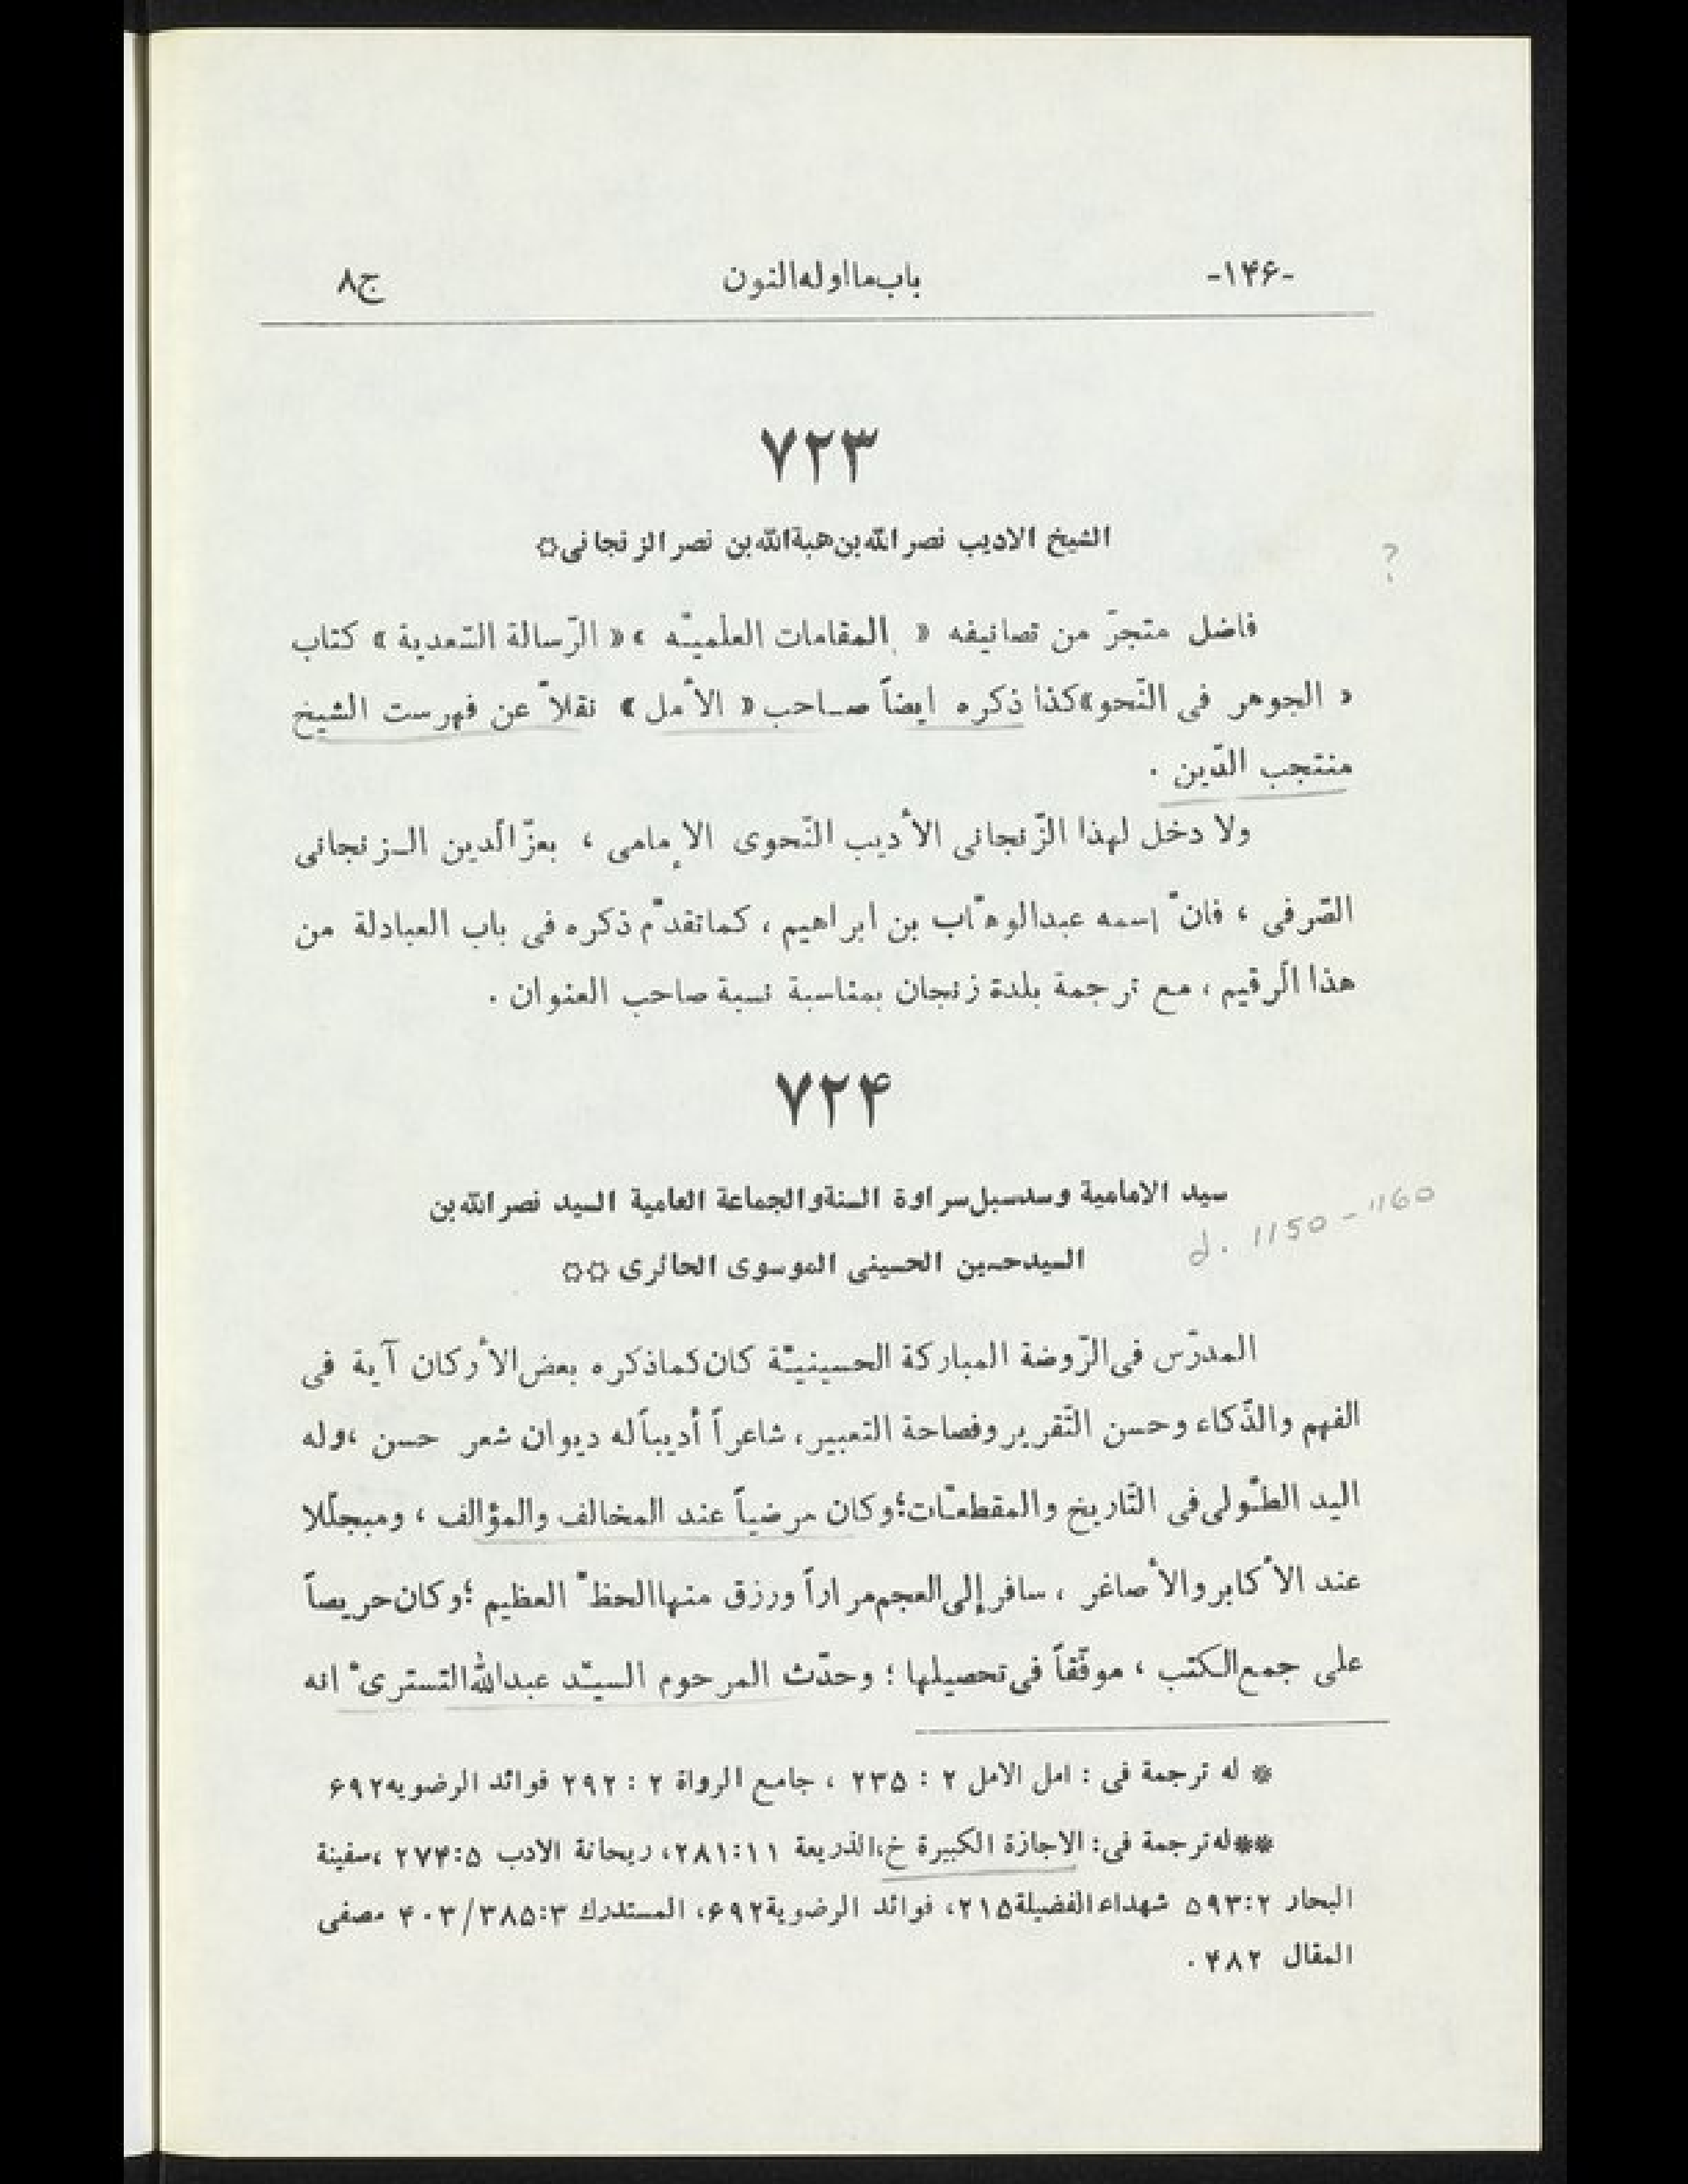 -۱۴۶- باب ما اوله النون ج۸
۷۲۳
الشيخ الاديب نصر الله بن هبة الله بن نصر الزنجانى☼
?
فاضل متجرّ من تصانيفه « المقامات العلميّه » « الرّسالة السّعدية » كتاب
« الجوهر فى النّحو» كذا ذكره ايضاً صاحب « الأمل » نقلاً عن فهرست الشيخ
منتجب الدّين .
ولا دخل لهذا الزّنجانى الأديب النّحوى الإمامى ، بعزّ الّدين الـزنجانى
الصّرفى ، فانّ إسمه عبدالوهّاب بن ابراهيم ، كما تقدّم ذكره فى باب العبادلة من
هذا الّرقيم ، مع ترجمة بلدة زنجان بمناسبة نسبة صاحب العنوان .
۷۲۴
سيد الامامية وسد سبل سراوة السنة والجماعة العامية السيد نصر الله بن
السيد حسين الحسينى الموسوى الحائرى ☼☼
d. 1150 - 1160
المدرّس فى الرّوضة المباركة الحسينيّة كان كما ذكره بعض الأركان آية فى
الفهم والذّكاء وحسن التّقرير وفصاحة التعبير، شاعراً أديباً له ديوان شعر حسن ،وله
اليد الطّولى فى التّاريخ والمقطعّات؛ وكان مرضياً عند المخالف والمؤالف ، ومبجلّلا
عند الأكابر والأصاغر ، سافر إلى العجم مراراً ورزق منها الحظّ العظيم ؛ وكان حريصاً
على جمع الكتب ، موفّقاً فى تحصيلها ؛ وحدّث المرحوم السيّد عبدالله التسترىّ انه
* له ترجمة فى : امل الامل ۲ : ۲۳۵ ، جامع الرواة ۲ : ۲۹۲ فوائد الرضويه ۶۹۲
**له ترجمة فى: الاجازة الكبيرة خ،الذريعة ۲۸۱:۱۱، ريحانة الادب ۲۷۴:۵ ،سفينة
البحار ۵۹۳:۲ شهداء الفضيلة ۲۱۵، فوائد الرضوية ۶۹۲، المستدرك ۳۸۵:۳/ ۴۰۳ مصفى
المقال ۴۸۲ .